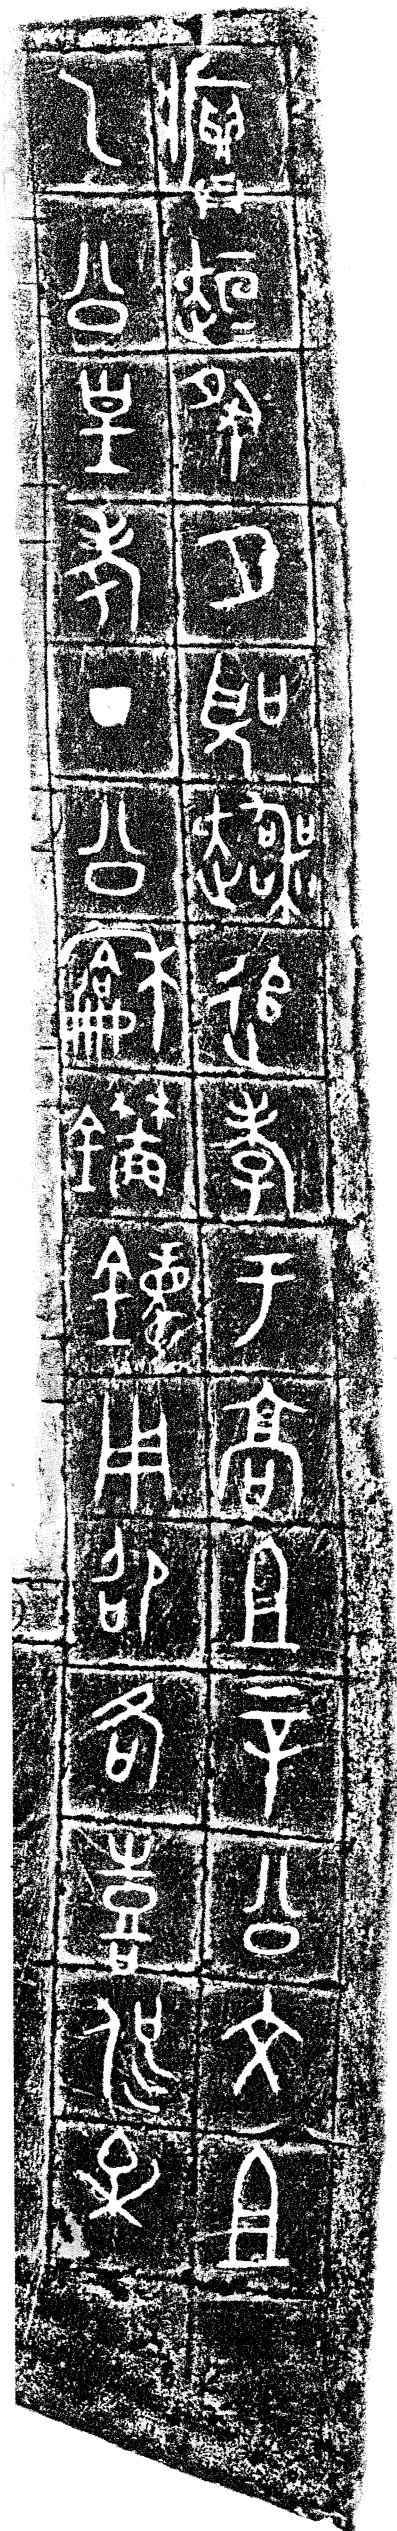 𤼈趄=夙夕聖趩追孝于高且辛公文且
乙公皇考丁公龢鑙鐘用卲各喜侃樂